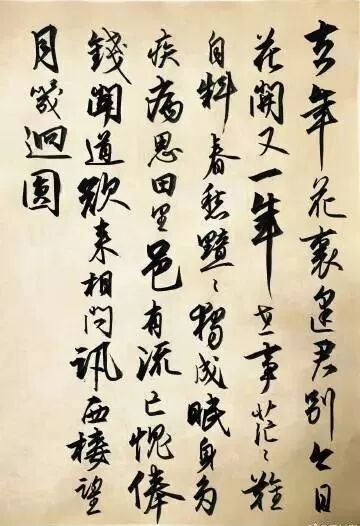 去年花裏逢君別今日
花開又一年世事茫〻難
自料春愁黯〻獨成眠身多
疾病思田里邑有流亡愧俸
錢聞道欲来相問訊西樓望
月幾迴圓